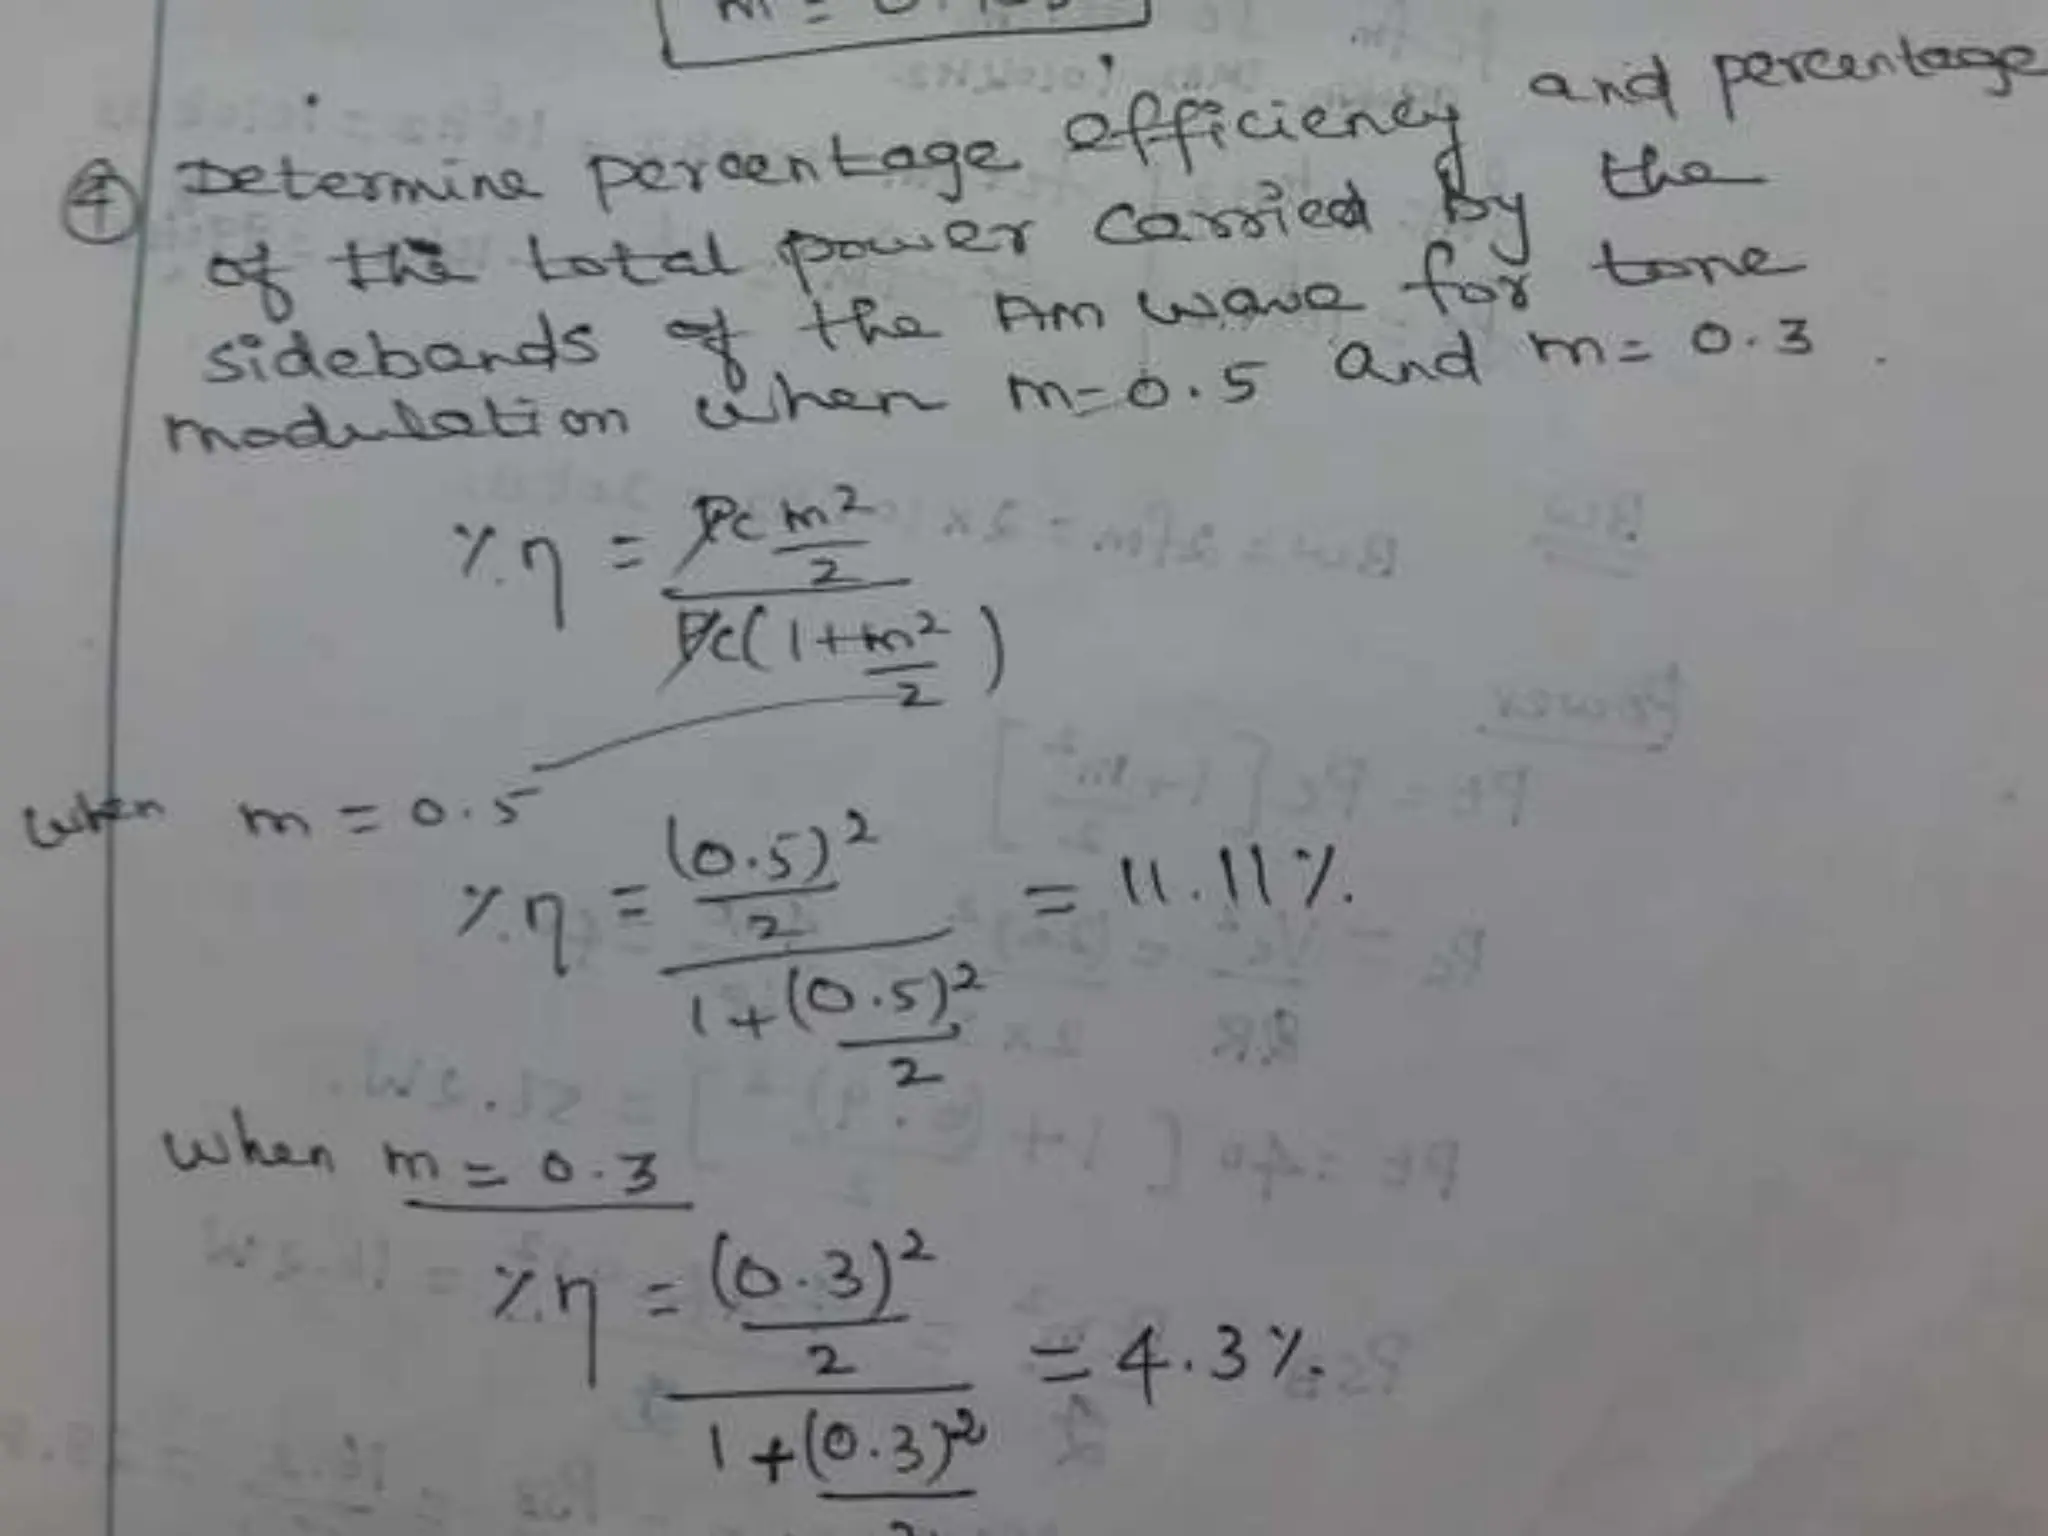 ④ Determine percentage efficiency and percentage
of the total power carried by the
sidebands of the AM wave for tone
modulation when m=0.5 and m=0.3.
%η = Pc m²/2 / Pc(1+m²/2)
when m=0.5
%η = (0.5)²/2 / 1+(0.5)²/2 = 11.11%.
when m=0.3
%η = (0.3)²/2 / 1+(0.3)² = 4.3%.